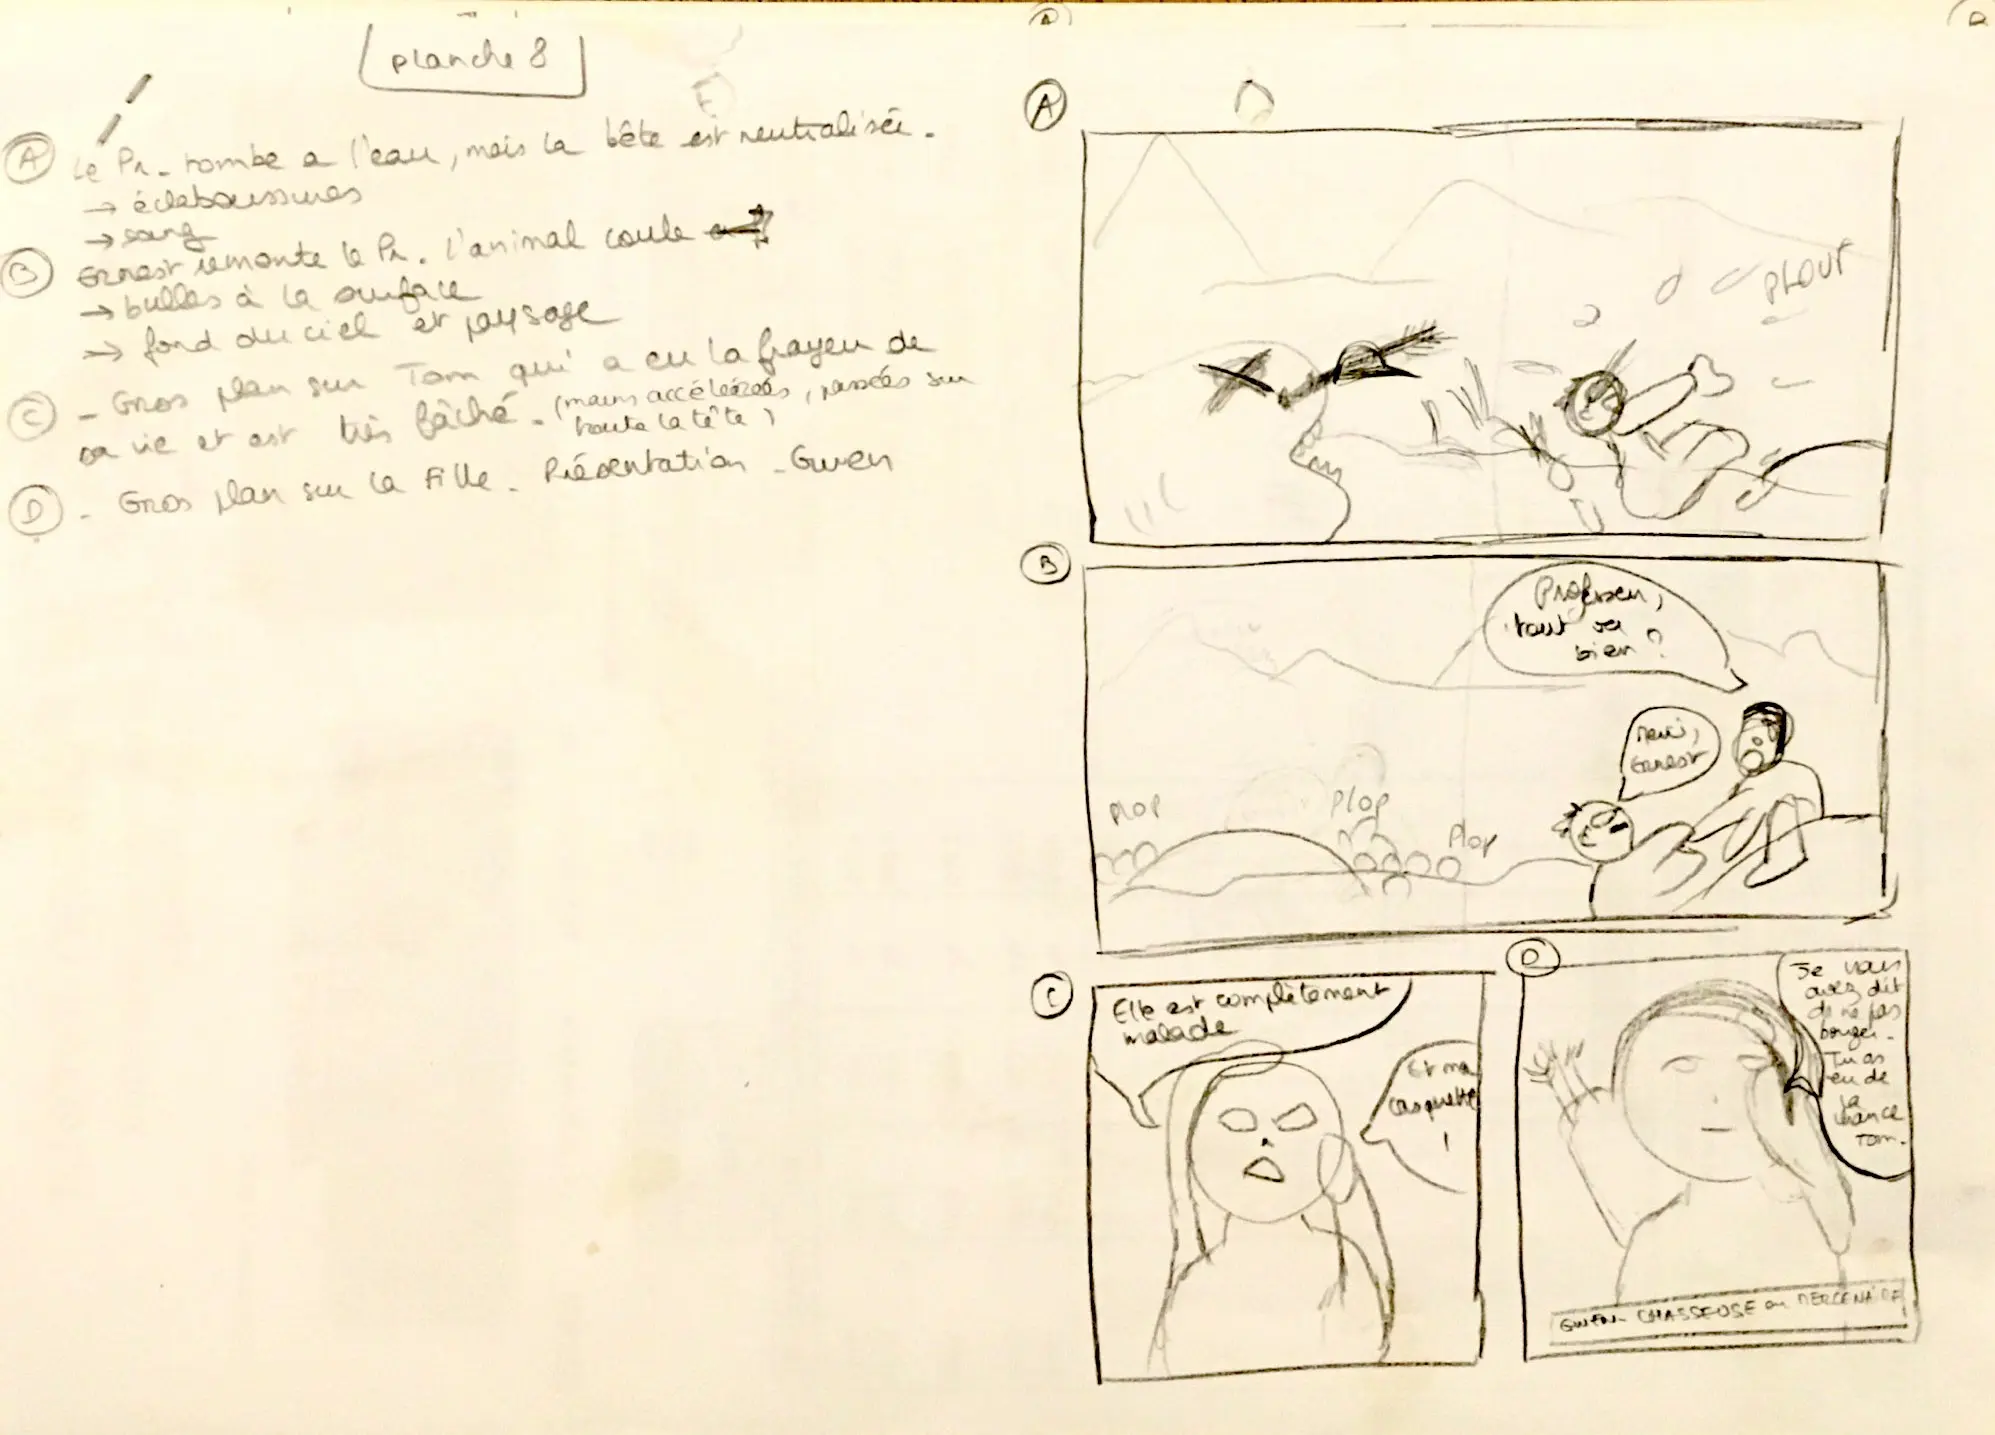 planche 8
A
Le Pr. tombe a l'eau, mais la bête est neutralisée.
→ éclaboussures
→ sang
B
Ernest remonte le Pr. l'animal coule
→ bulles à la surface
→ fond du ciel et paysage
C
- Gros plan sur Tom qui a eu la frayeur de
sa vie et est très fâché. (mains accélérées, passées sur
toute la tête)
D
- Gros plan sur la Fille. Présentation - Gwen
A
PLOUF
B
Professeur,
tout va
bien ?
Merci,
Ernest
PLOP
PLOP
Plop
C
Elle est complètement
malade
Et ma
casquette
!
D
Je vous
avez dit
de ne pas
bouger.
Tu as
eu de
la
chance
Tom.
GWEN - CHASSEUSE ou MERCENAIRE